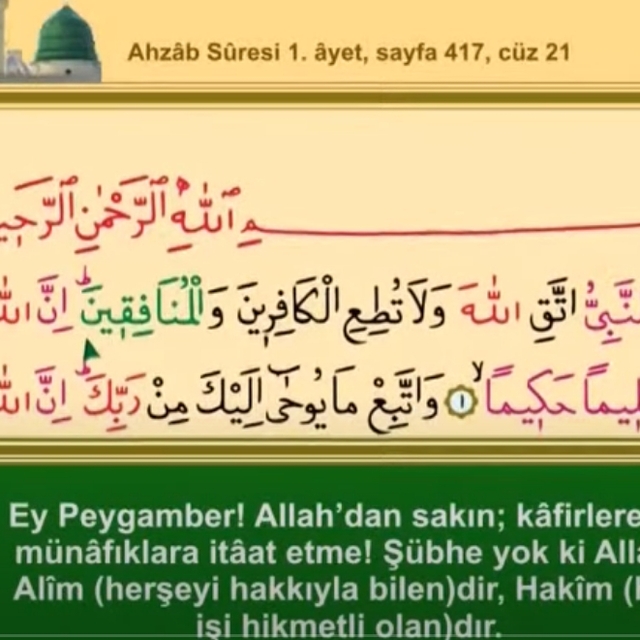 Ahzâb Sûresi 1. âyet, sayfa 417, cüz 21
اللّٰهِ الرَّحْمٰنِ
اتَّقِ اللّٰهَ وَلَا تُطِعِ الْكَافِرِينَ وَالْمُنَافِقِينَ ۜ اِنَّ
حَكِيماً ۙ ١ وَاتَّبِعْ مَا يُوحٰٓى اِلَيْكَ مِنْ رَبِّكَ ۜ اِنَّ
Ey Peygamber! Allah’dan sakın; kâfirlere
münâfıklara itâat etme! Şübhe yok ki All
Alîm (herşeyi hakkıyla bilen)dir, Hakîm (
işi hikmetli olan)dır.